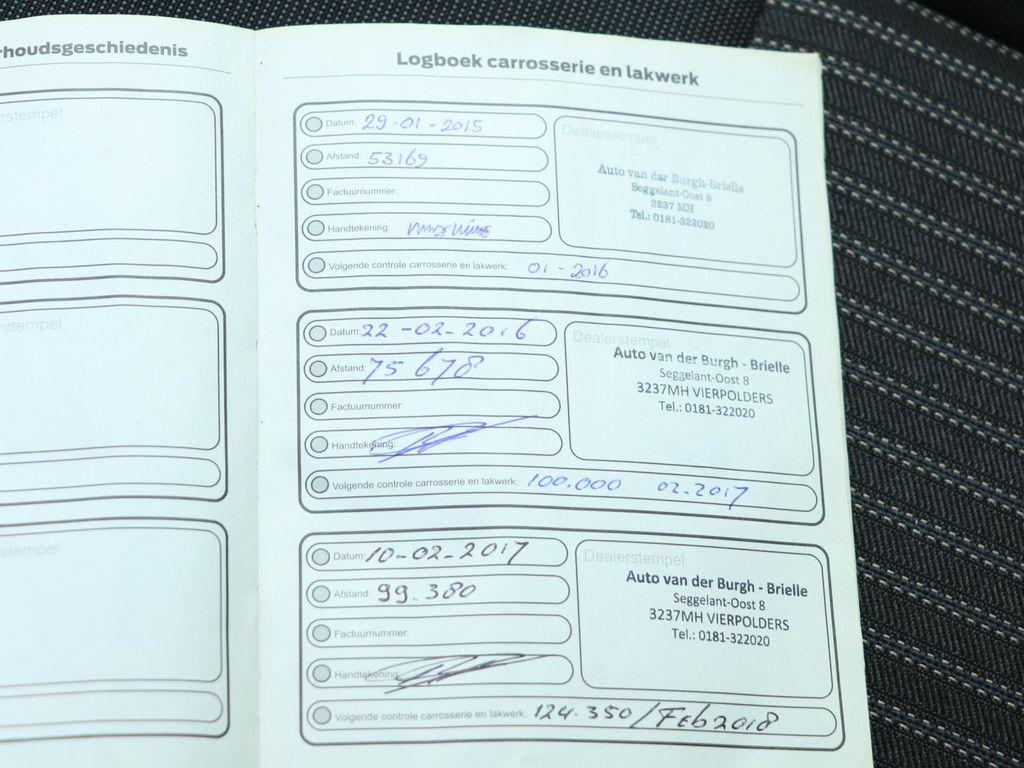 rhoudsgeschiedenis
rstempel
stempel
stempel
Logboek carrosserie en lakwerk
Datum: 29-01-2015
Afstand: 53169
Factuurnummer:
Handtekening:
Volgende controle carrosserie en lakwerk: 01-2016
Dealerstempel
Auto van der Burgh-Brielle
Seggelant-Oost 8
3237 MH
Tel.: 0181-322020
Datum: 22-02-2016
Afstand: 75678
Factuurnummer:
Handtekening:
Volgende controle carrosserie en lakwerk: 100.000 02.2017
Dealerstempel
Auto van der Burgh - Brielle
Seggelant-Oost 8
3237MH VIERPOLDERS
Tel.: 0181-322020
Datum: 10-02-2017
Afstand: 99.380
Factuurnummer:
Handtekening:
Volgende controle carrosserie en lakwerk: 124.350/Feb2018
Dealerstempel
Auto van der Burgh - Brielle
Seggelant-Oost 8
3237MH VIERPOLDERS
Tel.: 0181-322020